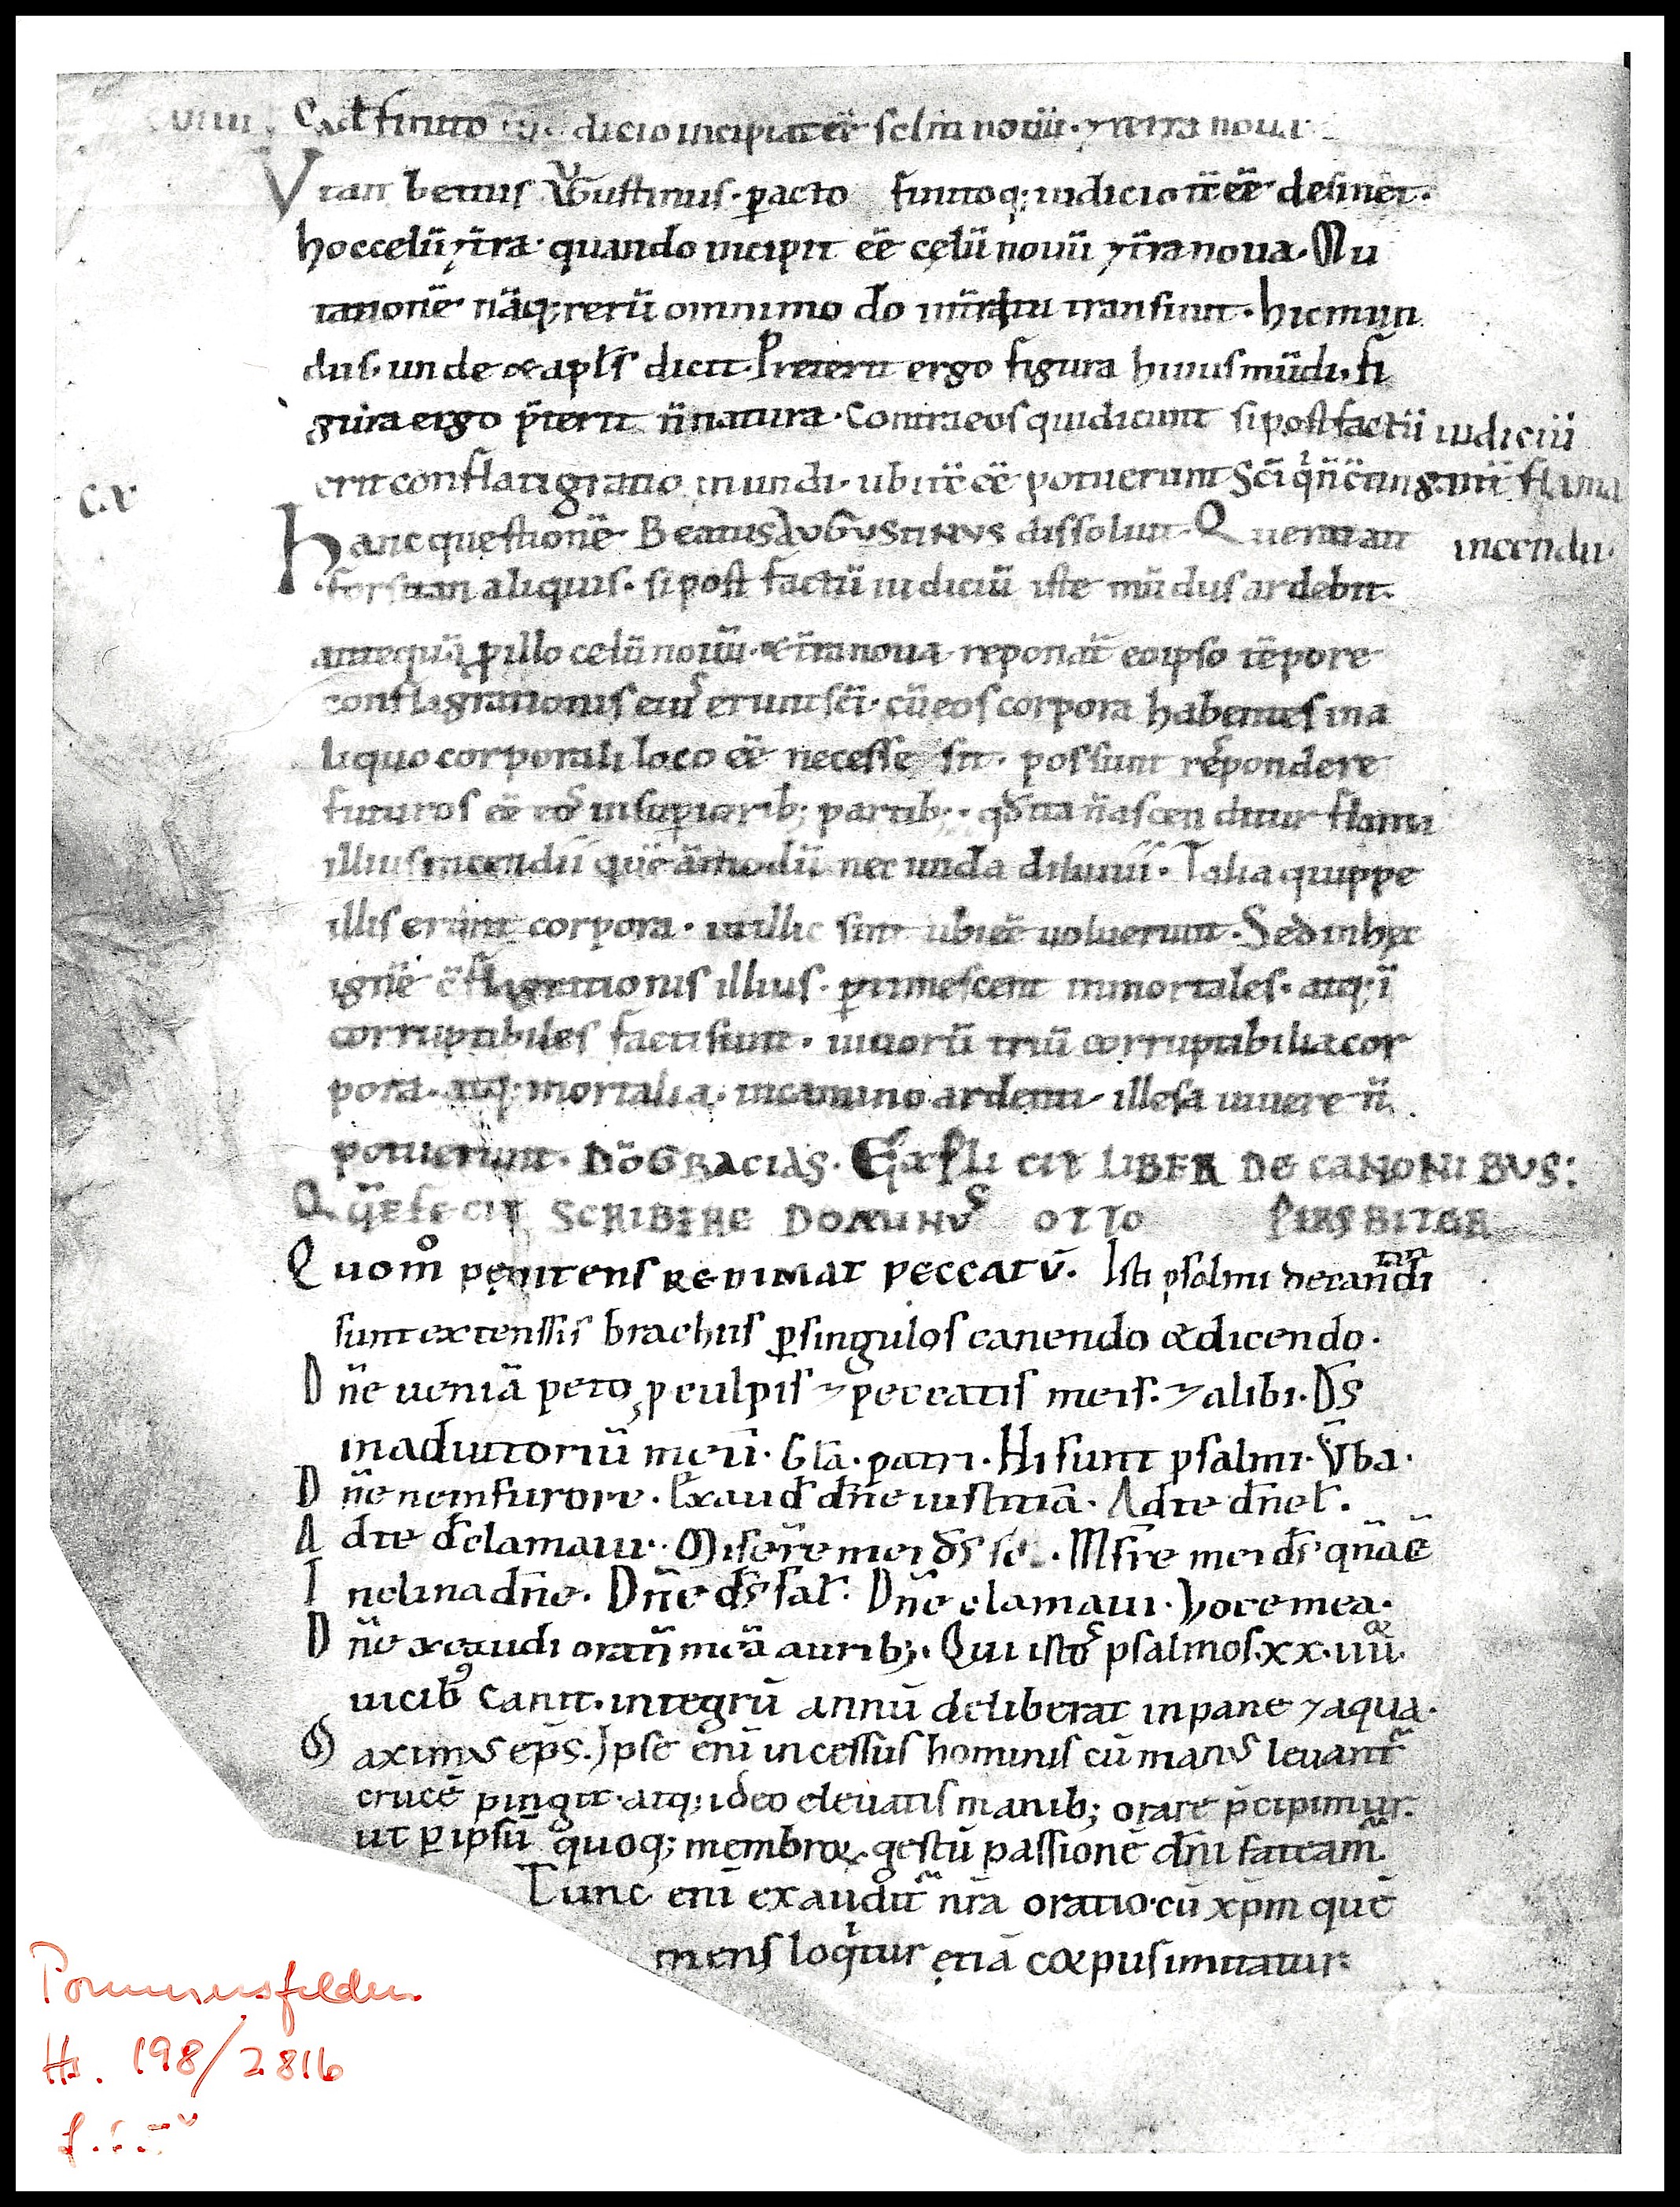 finito dicio incipiat eē celū nouū · ⁊ terra noua
Vt ait beatus Aγ̄gustinus · ꝑacto finitoq; iudicio tc̄ eē desinet ·
hoc celū ⁊ t̄ra · quando incipit eē cęlū nouū ⁊ t̄ra noua · Mu
tatione nāq; rerū omnimodo transiit · hic mun
dus · unde & apl̄s dicit · Preterit ergo figura huius mūdi · fi
gura ergo p̄terit n̄ natura · Contra eos qui dicunt si post factū iudiciū
erit conflatigratio mundi · ubi tc̄ eē potuerunt sc̄i flama
C.V
hanc questionē Beatus AUGUSTINUS dissoluit · Querat aut incendii ·
forsitan aliquis · si post factū iudiciū iste mūdus ardebit ·
antequā ꝑ illo celū nouū · & t̄ra noua reponat̄ eo ipso tēpore
conflagrationis eiuˢ erunt sc̄i · cū eos corpora habentes in a
liquo corporali loco eē necesse sit · possunt respondere
futuros eē eoˢ in supiorib; partib; · qđ ita n̄ ascenditur flama
illius incendii quē āmodū nec unda diluuii · Talia quippe
illis erunt corpora · ut illic sint ubi eē uoluerunt · Sed in hec
ignē c̄flagrationis illius · ꝑtimescent inmortales · atq; ī
corruptibiles facti sunt · uiuorū triū corruptibilia cor
pora · atq; mortalia · in camino ardenti illesa uiuere n̄
potuerunt · DŌ GRACIAS · Explicit LIBER DE CANONIBUS:
QUE FECIT SCRIBERE DOMINUˢ OTTO PRESBITER
Quom̊ pęnitens REDIMAT PECCATŪ · Isti psalmi decantandi
sunt extenssis brachiis ꝑ singulos canendo & dicendo ·
Dn̄e ueniā peto ꝓ culpis ⁊ peccatis meis · ⁊ alibi · Dˢ
in adiutoriū meū · Gl̄a · patri · Hi sunt psalmi · V̄ba ·
Dn̄e ne in furore · Exaud̄ dn̄e iustitiā · Ad te dn̄e l̄ ·
Ad te d̄ clamaui · Miserēre mei d̄s se · Ms̄re mei d̄s qn̄ā ē
Inclina dn̄e · Dn̄e d̄s sal̄ · Dn̄e clamaui · Uoce mea ·
Dn̄e exaudi orat̄n̄ meā aurib; · Qui istoˢ psalmos · xx · iiii ·
uicib⁹ canit · integrū annū deliberat in pane ⁊ aqua ·
Maximuˢ ep̄s · Ipse enī incessus hominis cū manuˢ leuant̄
crucē pingit · atq; ideo eleuatis manib; orare p̄cipimur ·
ut ꝑ ipsū quoq; membroꝝ gestū passionē dn̄i fateam̄ ·
Tunc enī exaudit̄ nr̄a oratio · cū xp̄m quē
mens loqͥtur etiā corpus imitatur ·
Pommersfelden
Hs. 198/2816